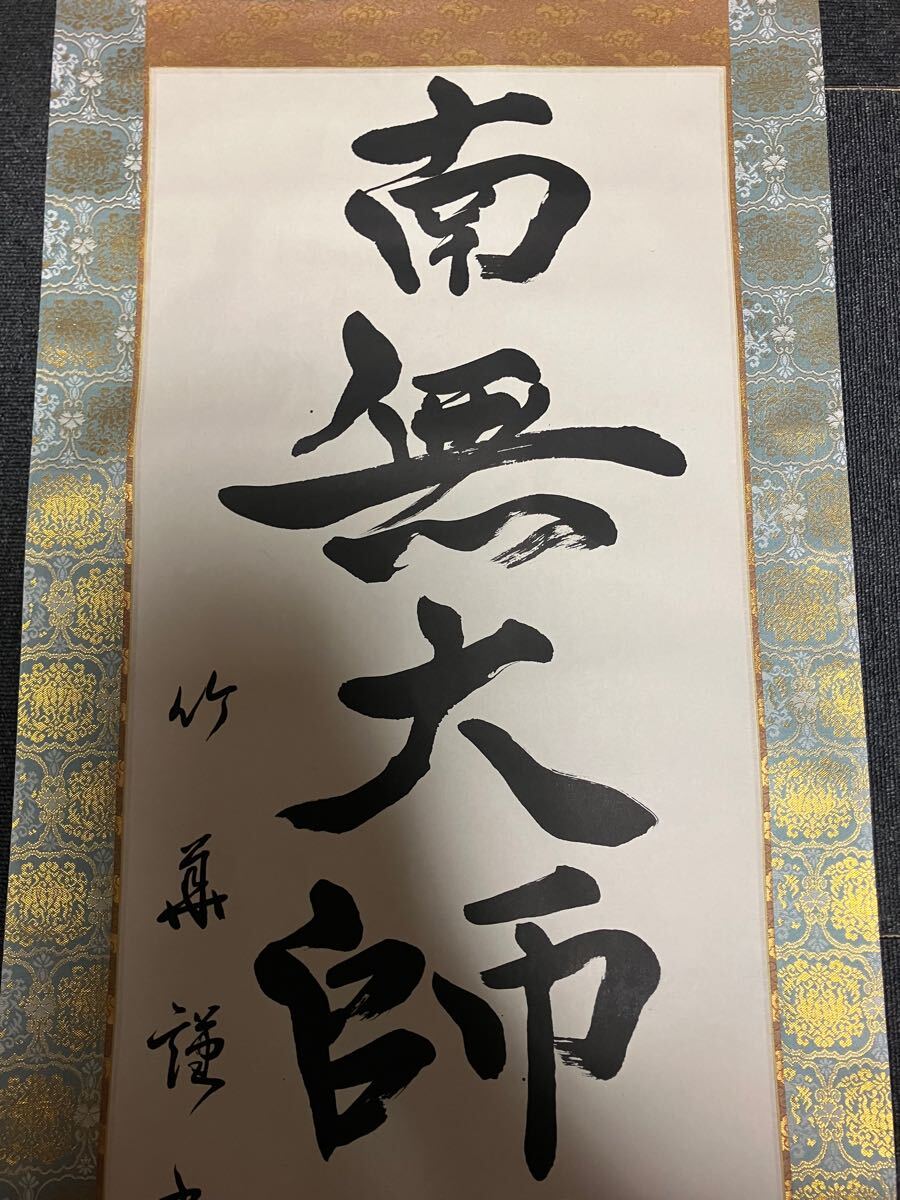 南無大師
竹華謹